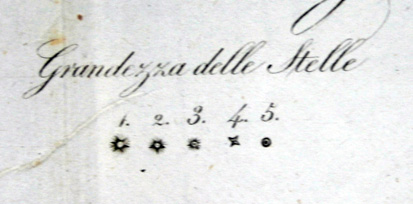 Grandezza delle Stelle
1. 2. 3. 4. 5.